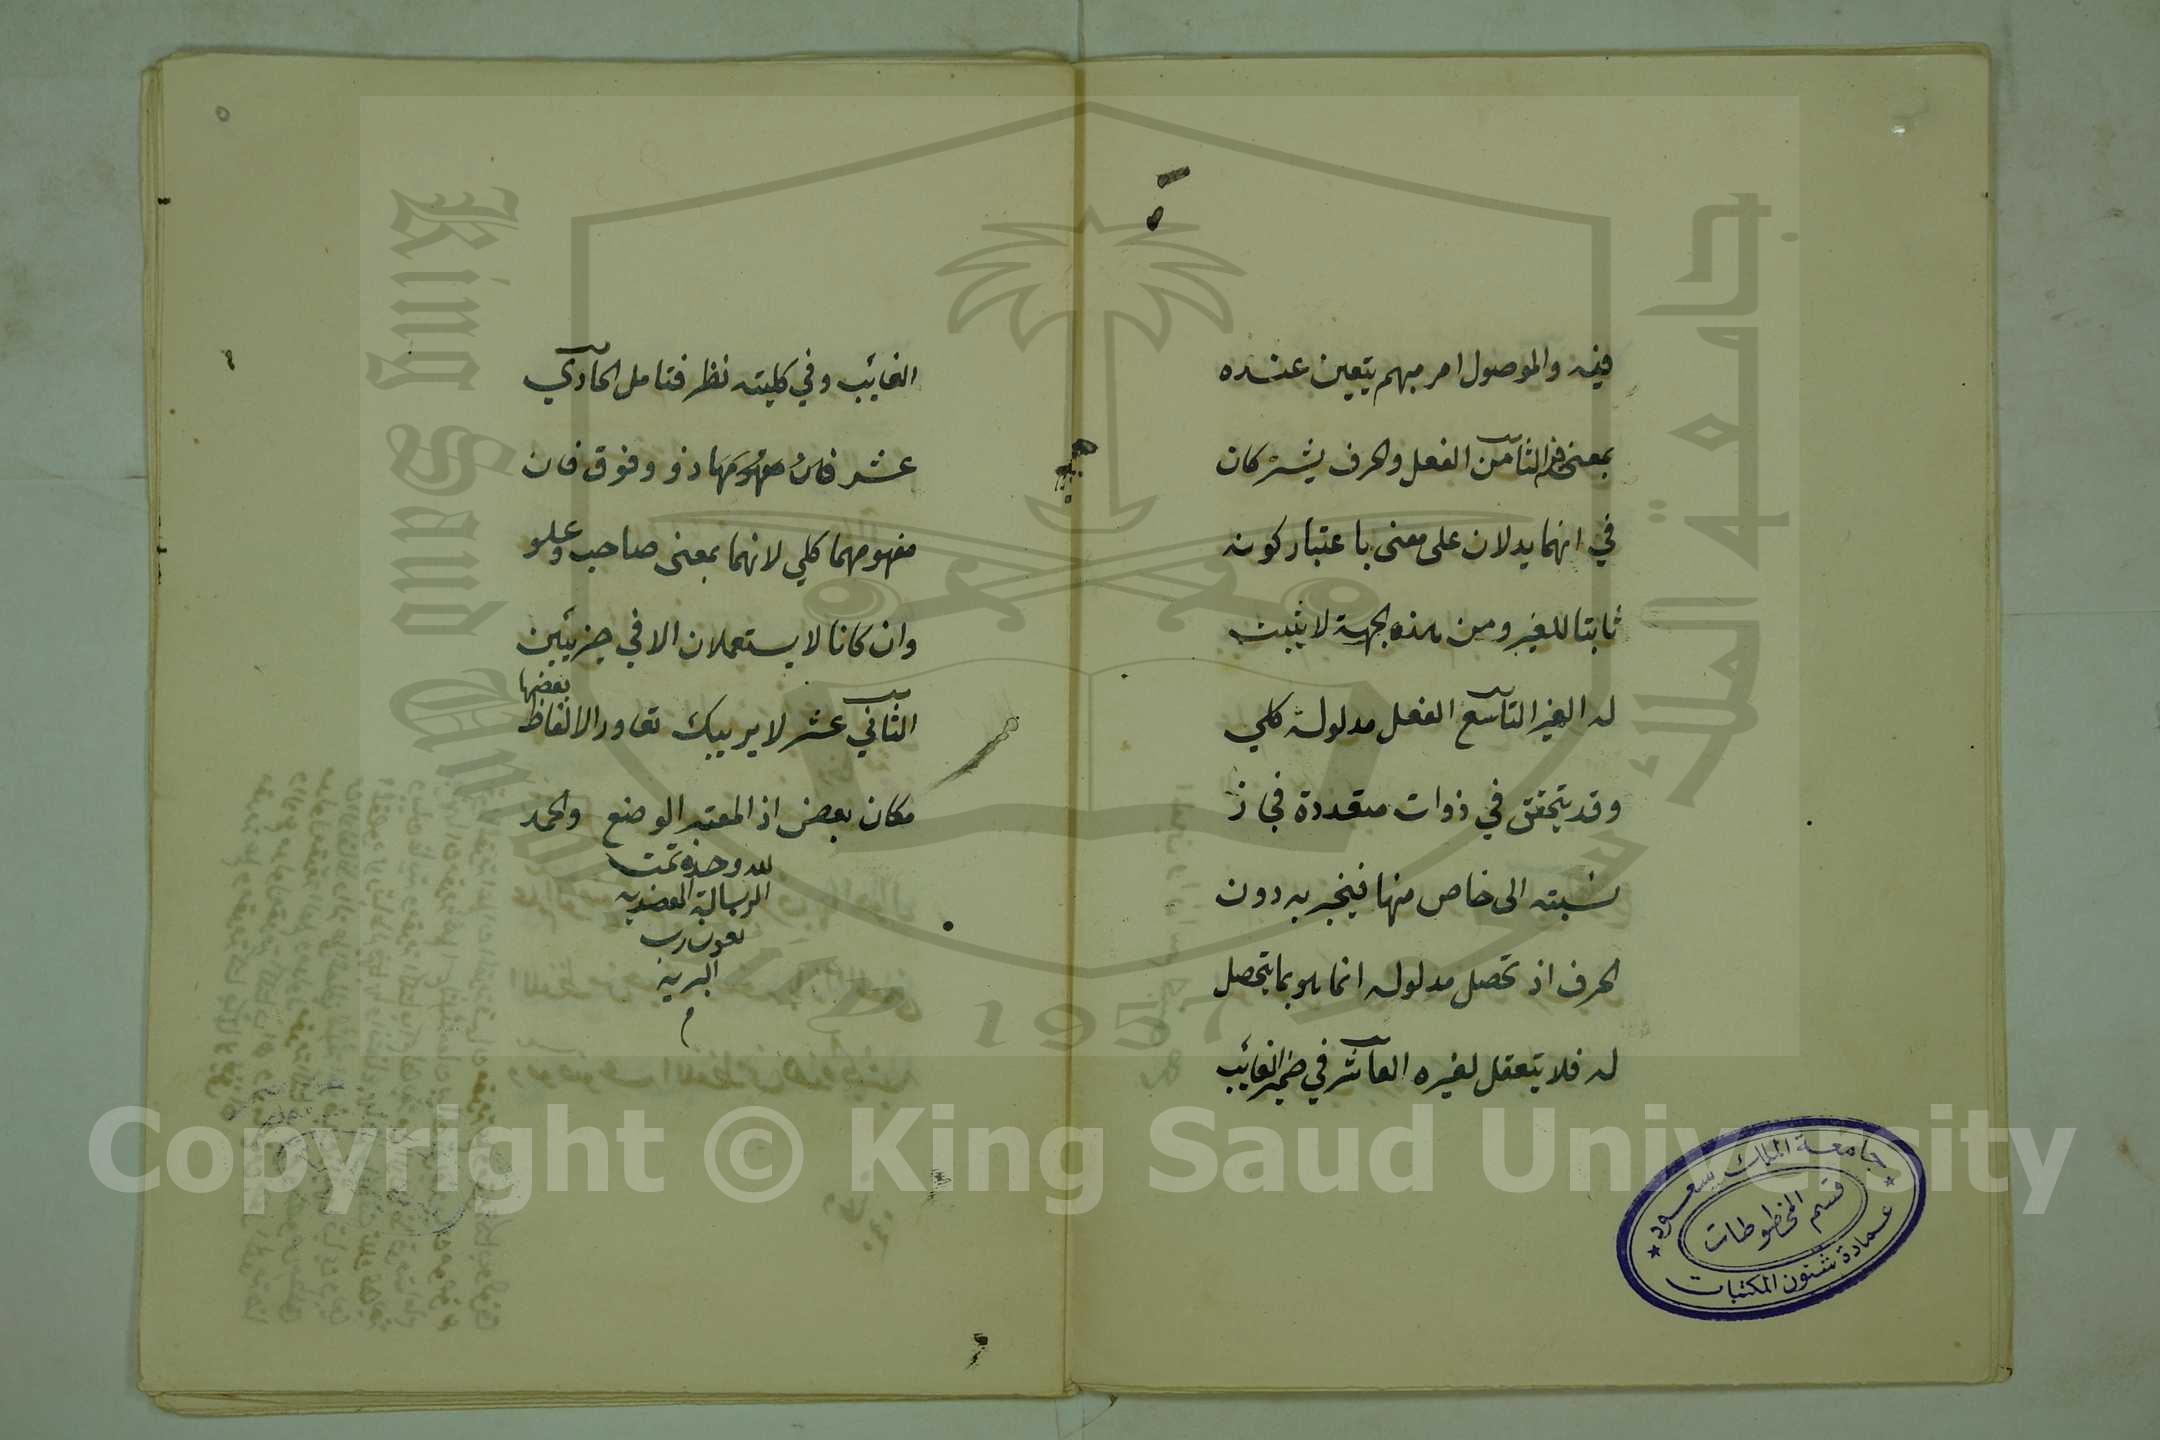 فيه والموصول امر مبهم يتعين عنده
بمعنى فيه الثامن الفعل والحرف يشتركان
في انهما يدلان على معنى باعتبار كونه
ثابتا للغير ومن هذه الجهة لا يثبت
له الغير التاسع الفعل مدلوله كلي
وقد يتحقق في ذوات متعددة فجاز
نسبته الى خاص منها فيخبر به دون
الحرف اذ تحصل مدلوله انما هو بما يتحصل
له فلا يتعقل لغيره العاشر في ضمير الغائب
جامعة الملك سعود
قسم المخطوطات
عمادة شئون المكتبات
٥
الغائب وفي كليته نظر فتامل الحادي
عشر ذو وفوق فان
مفهومهما كلي لانهما بمعنى صاحب وعلو
وان كانا لا يستعملان الا في جزئيين
الثاني عشر لا يريبك تعاور الالفاظ بعضها
مكان بعض اذ المعتبر الوضع والحمد
لله وحده تمت
الرسالة العضديه
بعون رب
البريه
م
King Saud University
جامعة الملك سعود
1957
Copyright © King Saud University